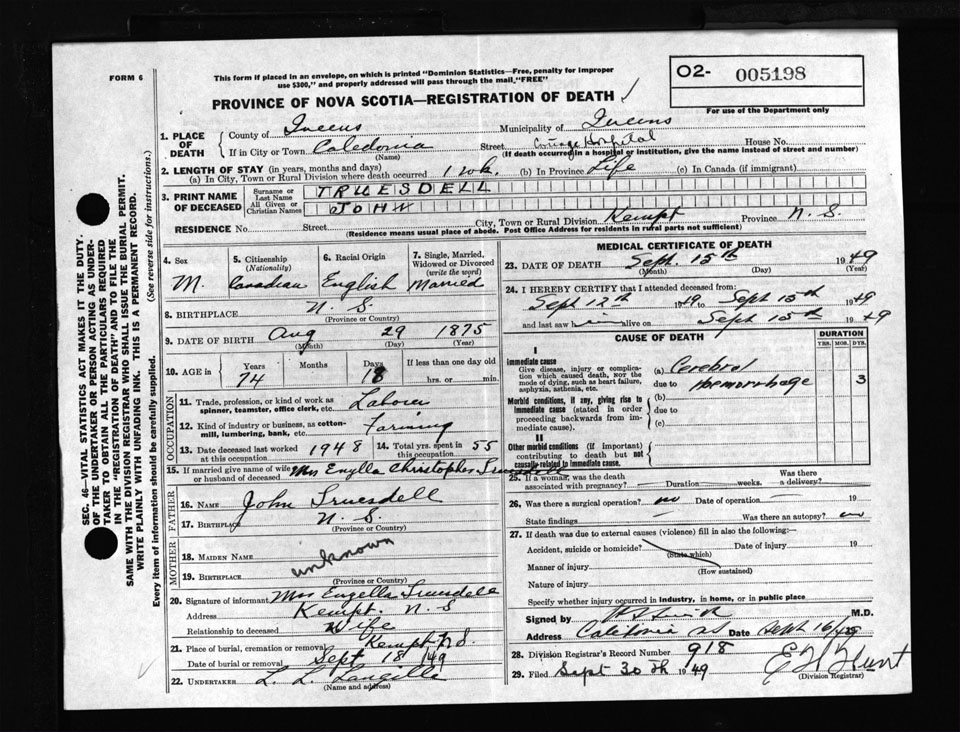 FORM 6
This form if placed in an envelope, on which is printed "Dominion Statistics—Free, penalty for improper
use $300," and properly addressed will pass through the mail, "FREE"
O2- 005198
For use of the Department only
PROVINCE OF NOVA SCOTIA—REGISTRATION OF DEATH
SEC. 46—VITAL STATISTICS ACT MAKES IT THE DUTY
OF THE UNDERTAKER OR PERSON ACTING AS UNDER-
TAKER TO OBTAIN ALL THE PARTICULARS REQUIRED
IN THE "REGISTRATION OF DEATH" AND TO FILE THE
SAME WITH THE DIVISION REGISTRAR WHO SHALL ISSUE THE BURIAL PERMIT.
WRITE PLAINLY WITH UNFADING INK. THIS IS A PERMANENT RECORD.
Every item of information should be carefully supplied. (See reverse side for instructions.)
1. PLACE OF DEATH County of Queens Municipality of Queens
If in City or Town Caledonia Street Cottage Hospital House No.
(Name) (If death occurred in a hospital or institution, give the name instead of street and number)
2. LENGTH OF STAY (in years, months and days)
(a) In City, Town or Rural Division where death occurred 1 wk. (b) In Province Life (c) In Canada (if immigrant)
3. PRINT NAME OF DECEASED Surname or Last Name TRUESDELL
All Given or Christian Names JOHN
RESIDENCE No. Street City, Town or Rural Division Kempt Province N.S.
(Residence means usual place of abode. Post Office Address for residents in rural parts not sufficient)
4. Sex M. 5. Citizenship (Nationality) Canadian 6. Racial Origin English 7. Single, Married, Widowed or Divorced (write the word) Married
8. BIRTHPLACE N.S
(Province or Country)
9. DATE OF BIRTH Aug 29 1875
(Month) (Day) (Year)
10. AGE in Years 74 Months Days 18 If less than one day old hrs. or min.
OCCUPATION
11. Trade, profession, or kind of work as spinner, teamster, office clerk, etc. Laborer
12. Kind of industry or business, as cotton-mill, lumbering, bank, etc. Farming
13. Date deceased last worked at this occupation 1948 14. Total yrs. spent in this occupation 55
15. If married give name of wife or husband of deceased Mrs Christopher Truesdell
FATHER
16. NAME John Truesdell
17. BIRTHPLACE N.S.
(Province or Country)
MOTHER
18. MAIDEN NAME unknown
19. BIRTHPLACE
(Province or Country)
20. Signature of informant Mrs Truesdell
Address Kempt. N. S
Relationship to deceased Wife
21. Place of burial, cremation or removal Kempt N.S.
Date of burial or removal Sept 18/49
22. UNDERTAKER L. L. Langille
(Name and address)
MEDICAL CERTIFICATE OF DEATH
23. DATE OF DEATH Sept. 15th 1949
(Month) (Day) (Year)
24. I HEREBY CERTIFY that I attended deceased from:
Sept 12th 1949 to Sept 15th 1949
and last saw him alive on Sept 15th 1949
CAUSE OF DEATH DURATION
YRS. MOS. DYS.
I
Immediate cause
Give disease, injury or complication which caused death, NOT the mode of dying, such as heart failure, asphyxia, asthenia, etc.
(a) Cerebral
due to Haemorrhage 3
Morbid conditions, if any, giving rise to immediate cause (stated in order proceeding backwards from immediate cause).
(b)
due to
(c)
II
Other morbid conditions (if important) contributing to death but not causally related to immediate cause.
25. If a woman, was the death associated with pregnancy? Duration weeks. Was there a delivery?
26. Was there a surgical operation? no Date of operation 19
State findings Was there an autopsy? no
27. If death was due to external causes (violence) fill in also the following:—
Accident, suicide or homicide? Date of injury 19
(State which)
Manner of injury
(How sustained)
Nature of injury
Specify whether injury occurred in industry, in home, or in public place
Signed by M.D.
Address Caledonia NS Date Sept 16/49
28. Division Registrar's Record Number 918
29. Filed Sept 30th 1949
(Division Registrar)